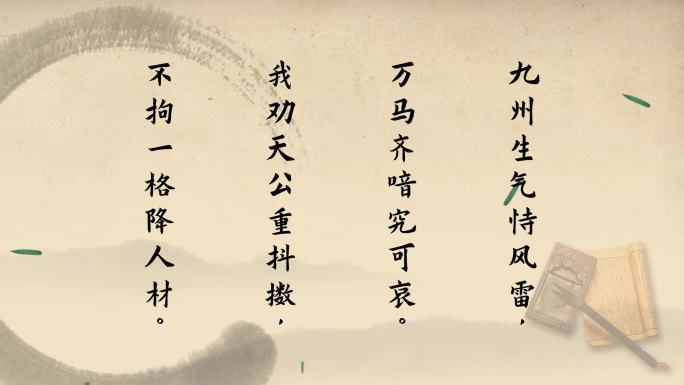 九州生气恃风雷，
万马齐喑究可哀。
我劝天公重抖擞，
不拘一格降人材。